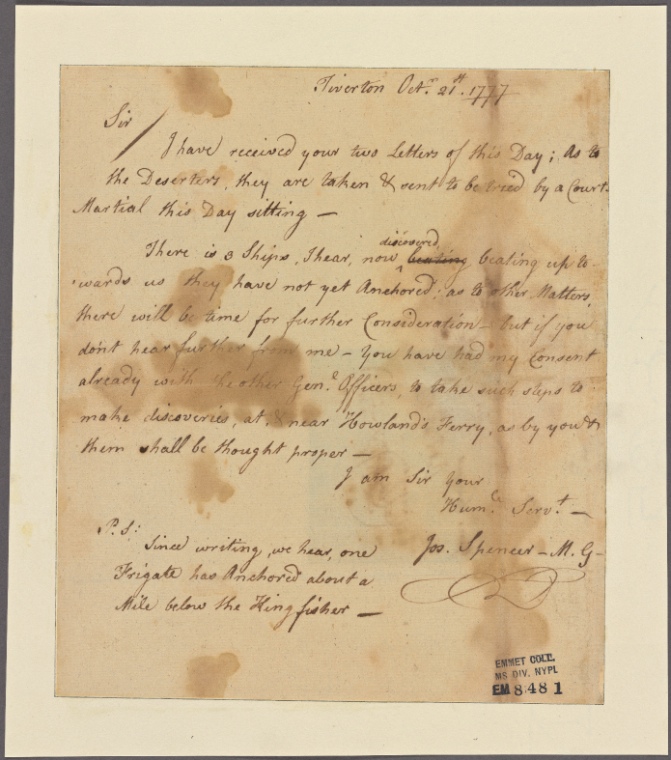 Tiverton Octr. 21st. 1777
Sir
I have received your two Letters of this Day; As to
the Deserters, they are taken & sent to be tried by a Court-
Martial this Day sitting —
discovered
There is 3 Ships, I hear, now beating beating up to-
wards us they have not yet Anchored: as to other Matters,
there will be time for further Consideration — but if you
dont hear further from me — You have had my Consent
already with the other Genl. Officers, to take such steps to
make discoveries, at, & near Howland's Ferry, as by you &
them shall be thought proper —
I am Sir your
Humle Servt. —
Jos. Spencer — M. G —
P. S:
Since writing, we hear, one
Frigate has Anchored about a
Mile below the Kingfisher —
EMMET COLL.
MS DIV. NYPL
EM 8481